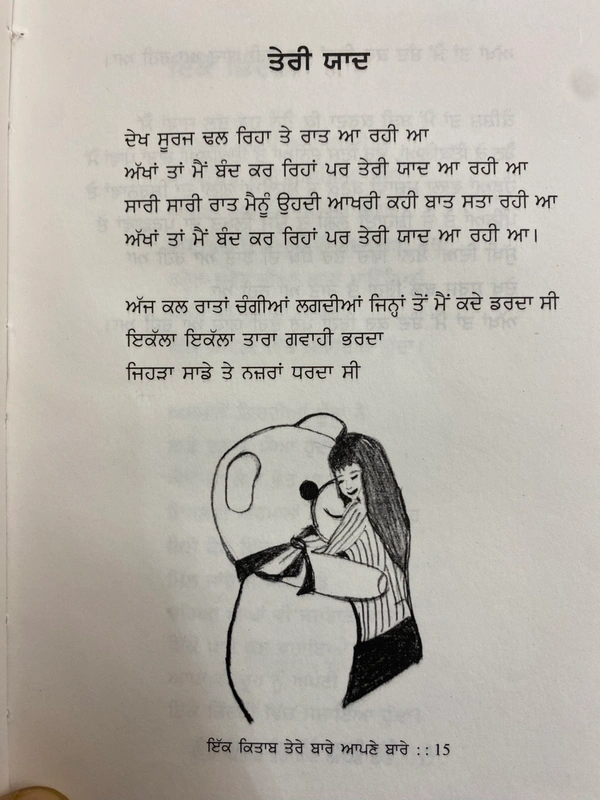 ਤੇਰੀ ਯਾਦ
ਦੇਖ ਸੂਰਜ ਢਲ ਰਿਹਾ ਤੇ ਰਾਤ ਆ ਰਹੀ ਆ
ਅੱਖਾਂ ਤਾਂ ਮੈਂ ਬੰਦ ਕਰ ਰਿਹਾਂ ਪਰ ਤੇਰੀ ਯਾਦ ਆ ਰਹੀ ਆ
ਸਾਰੀ ਸਾਰੀ ਰਾਤ ਮੈਨੂੰ ਉਹਦੀ ਆਖਰੀ ਕਹੀ ਬਾਤ ਸਤਾ ਰਹੀ ਆ
ਅੱਖਾਂ ਤਾਂ ਮੈਂ ਬੰਦ ਕਰ ਰਿਹਾਂ ਪਰ ਤੇਰੀ ਯਾਦ ਆ ਰਹੀ ਆ।
ਅੱਜ ਕਲ ਰਾਤਾਂ ਚੰਗੀਆਂ ਲਗਦੀਆਂ ਜਿਨ੍ਹਾਂ ਤੋਂ ਮੈਂ ਕਦੇ ਡਰਦਾ ਸੀ
ਇਕੱਲਾ ਇਕੱਲਾ ਤਾਰਾ ਗਵਾਹੀ ਭਰਦਾ
ਜਿਹੜਾ ਸਾਡੇ ਤੇ ਨਜ਼ਰਾਂ ਧਰਦਾ ਸੀ
ਇੱਕ ਕਿਤਾਬ ਤੇਰੇ ਬਾਰੇ ਆਪਣੇ ਬਾਰੇ : : 15